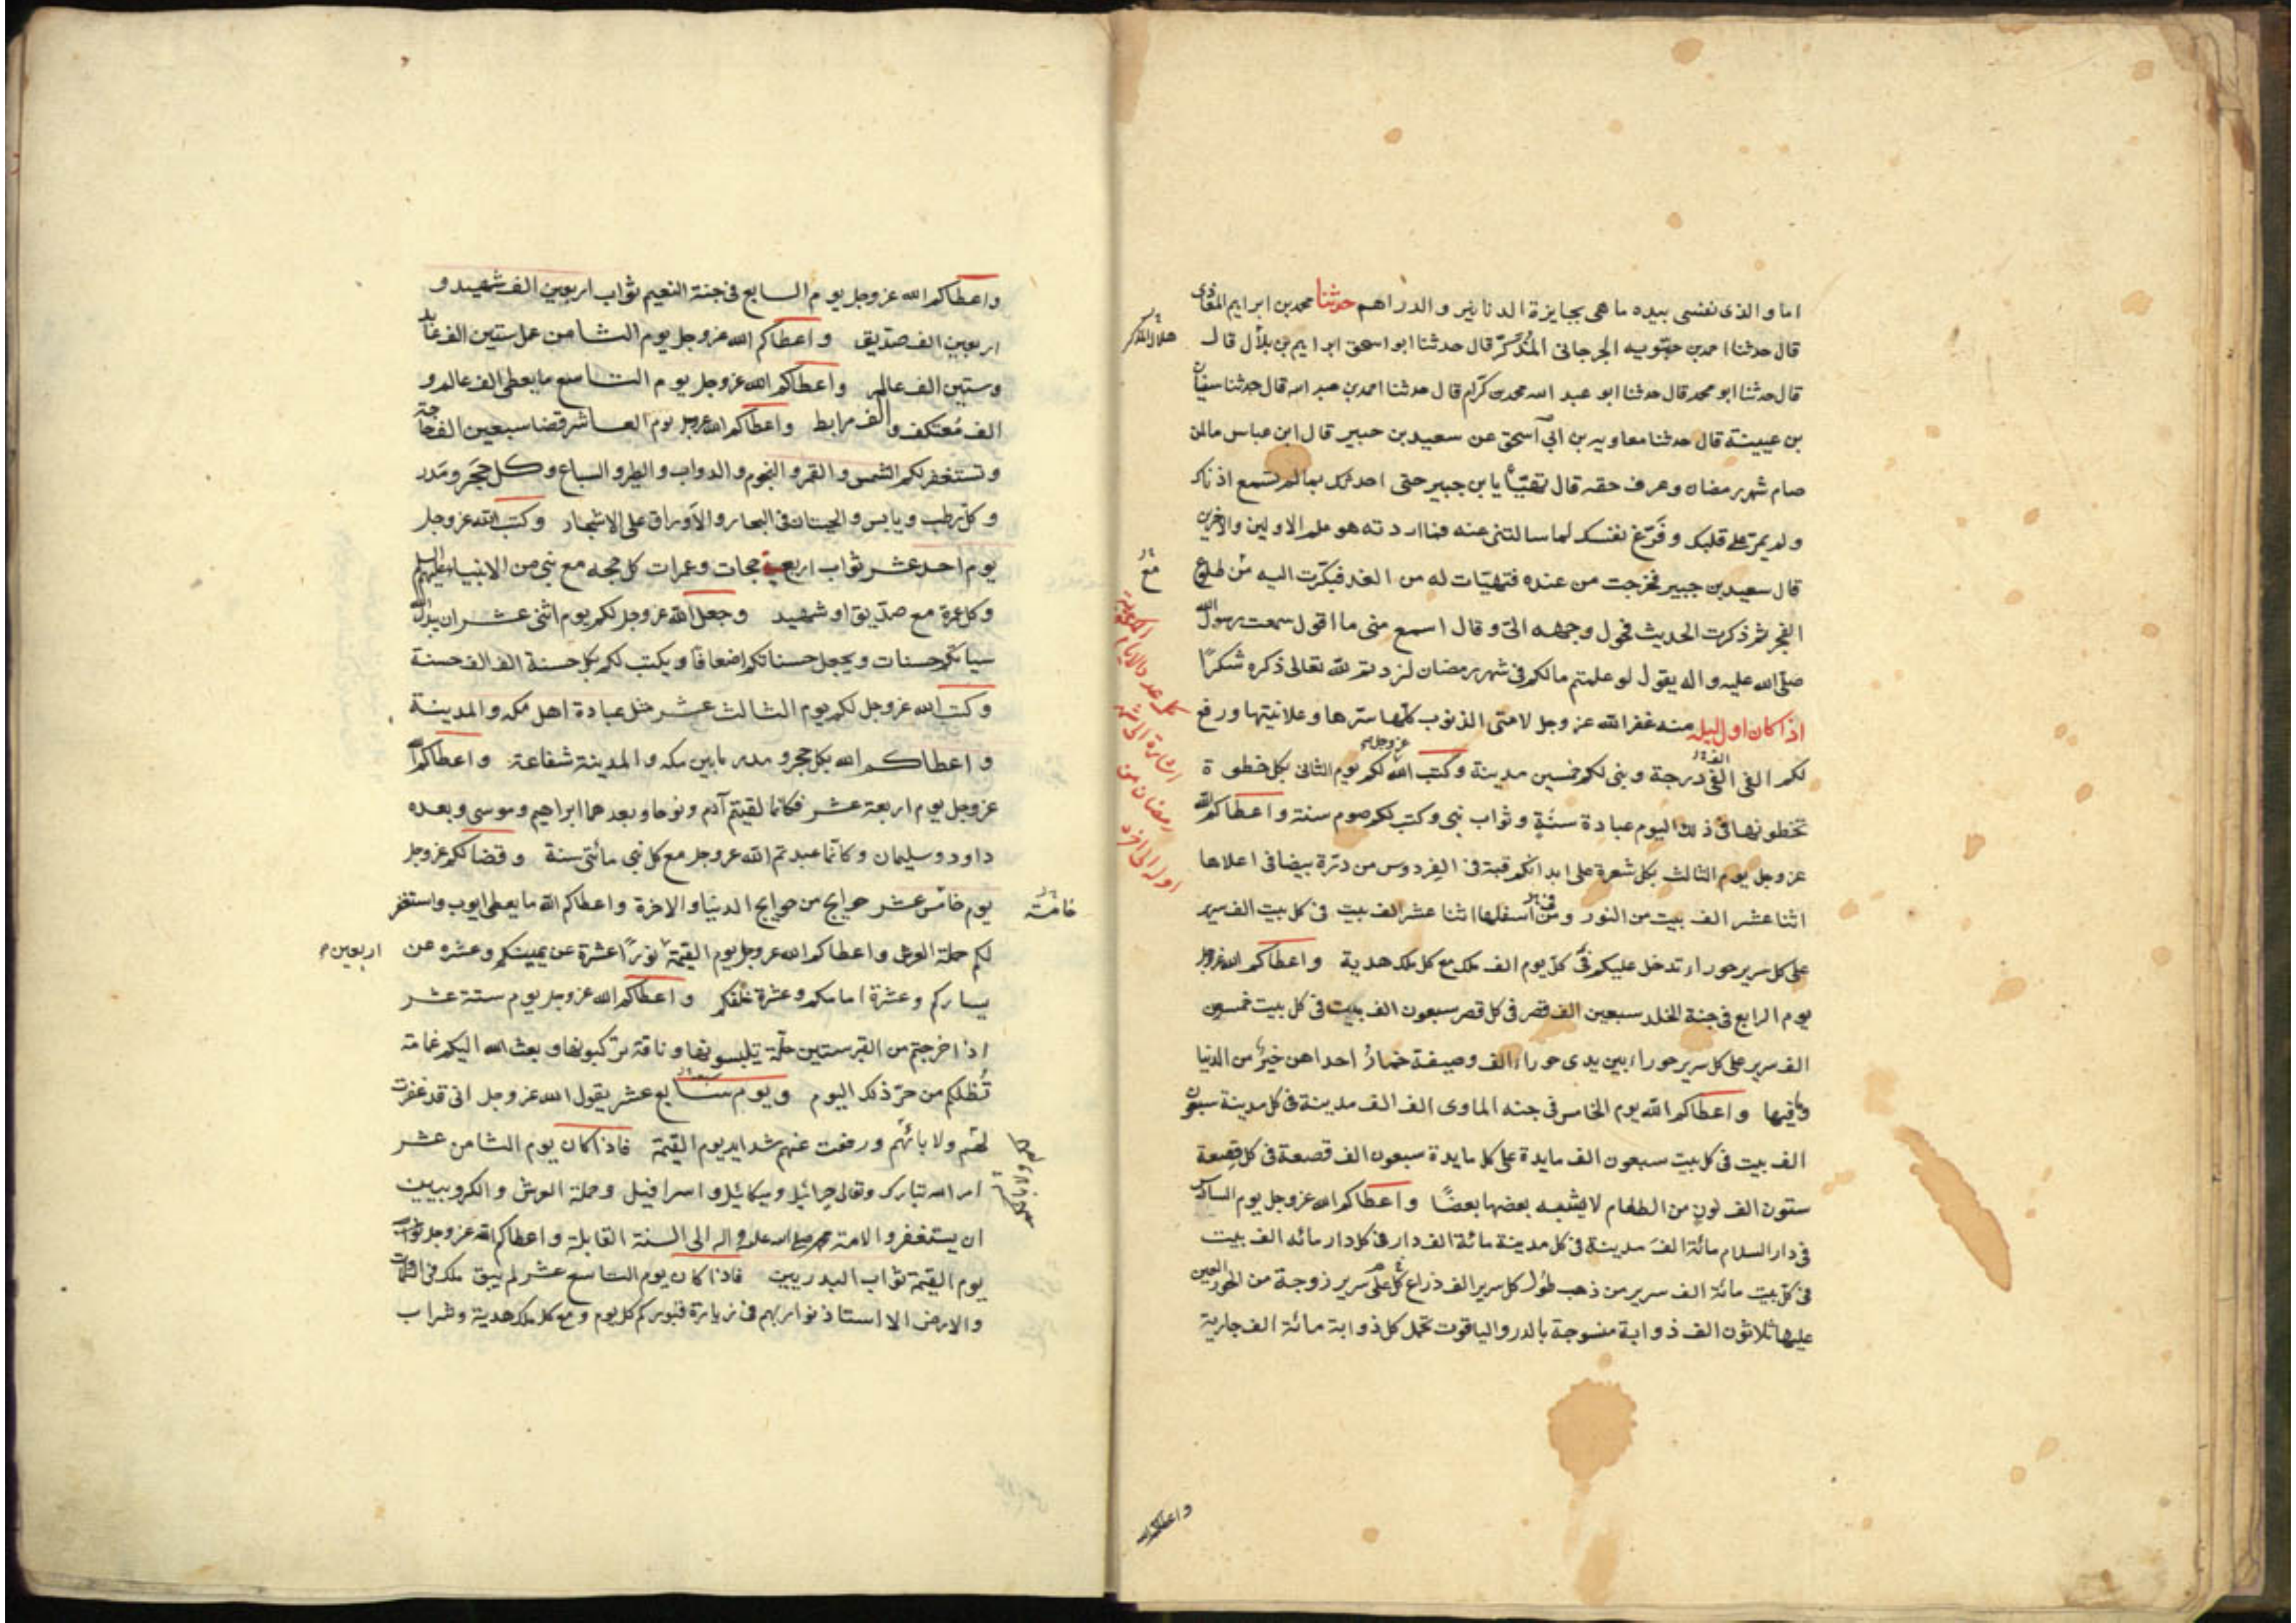 اما والذى نفسى بيده ما هى بجايزة الدنانير والدراهم حدثنا محمد بن ابراهيم المعاذى
قال حدثنا احمد بن حيّويه الجرجانى المُذكّر قال حدثنا ابو اسحق ابراهيم بن بلال قال
هلال المذكر
قال حدثنا ابو محمد قال حدثنا ابو عبد الله محمد بن كرّام قال حدثنا احمد بن عبد الله قال حدثنا سفيان
بن عيينة قال حدثنا معاوية بن ابى اسحق عن سعيد بن جبير قال ابن عباس ما لمن
صام شهر رمضان وعرف حقه قال تهيّأ يا بن جبير حتى احدثك بما لم تسمع اذناك
ولم يمرّ على قلبك وفرّغ نفسك لما سالتنى عنه فما اردته هو علم الاولين والاخرين
قال سعيد بن جبير فخرجت من عنده فتهيّات له من الغد فبكّرت اليه من طلوع
مع
الفجر ثم ذكرت الحديث فحول وجهه الىّ وقال اسمع منى ما اقول سمعت رسول الله
صلّى الله عليه واله يقول لو علمتم ما لكم فى شهر رمضان لزدتم لله تعالى ذكره شكرًا
اذا كان اول ليلة منه غفر الله عز وجل لامتى الذنوب كلّها سرّها وعلانيتها ورفع
لكم الفى الفى درجة وبنى لكم خمسين مدينة وكتب الله عز وجل لكم يوم الثانى بكل خطوة
تخطونها فى ذلك اليوم عبادة سنةٍ وثواب نبى وكتب لكم صوم سنة واعطاكم الله
عز وجل يوم الثالث بكل شعرة على ابدانكم قبة فى الفردوس من درّة بيضا فى اعلاها
اثنا عشر الف بيت من النور ومن اسفلها اثنا عشر الف بيت فى كل بيت الف سرير
على كل سرير حوراء تدخل عليكم فى كلّ يوم الف ملك مع كل ملك هدية واعطاكم الله عز وجل
يوم الرابع فى جنة الخلد سبعين الف قصر فى كل قصر سبعون الف بيت فى كل بيت خمسون
الف سرير على كل سرير حوراء بين يدى حوراء الف وصيفة خمار احداهن خير من الدنيا
وما فيها واعطاكم الله يوم الخامس فى جنه الماوى الف الف مدينة فى كل مدينة سبعون
الف بيت فى كل بيت سبعون الف مايدة على كل مايدة سبعون الف قصعة فى كل قصعة
ستون الف لون من الطعام لا يشبه بعضها بعضًا واعطاكم الله عز وجل يوم السادس
فى دار السلام مائة الف مدينة فى كل مدينة مائة الف دار فى كل دار مائه الف بيت
فى كل بيت مائة الف سرير من ذهب طول كل سرير الف ذراع على كل سرير زوجة من الحور العين
عليها ثلاثون الف ذوابة منسوجة بالدر والياقوت تحمل كل ذوابة مائة الف جارية
واعطاكم الله
واعطاكم الله عز وجل يوم السابع فى جنة النعيم ثواب اربعين الف شهيد و
اربعين الف صدّيق واعطاكم الله عز وجل يوم الثامن عمل ستين الف عابد
وستين الف عالم واعطاكم الله عز وجل يوم التاسع ما يعطى الف عالم و
الف معتكف والف مرابط واعطاكم الله عز وجل يوم العاشر قضا سبعين الف حاجة
وتستغفر لكم الشمس والقمر والنجوم والدواب والطير والسباع وكل حجر ومدر
وكل رطب ويابس والحيتان فى البحار والاوراق على الاشجار وكتب الله عز وجل
يوم احد عشر ثواب اربع حجات وعمرات كل حجه مع نبى من الانبياء عليهم السلم
وكل عمرة مع صدّيق او شهيد وجعل الله عز وجل لكم يوم اثنى عشر ان يبدل الله
سياتكم حسنات ويجعل حسناتكم اضعافًا ويكتب لكم بكل حسنة الف الف حسنة
وكتب الله عز وجل لكم يوم الثالث عشر مثل عبادة اهل مكه والمدينة
واعطاكم الله بكل حجر ومدر ما بين مكه والمدينة شفاعة واعطاكم الله
عز وجل يوم اربعة عشر فكانما لقيتم آدم ونوحا وبعدهما ابراهيم وموسى وبعده
داود وسليمان وكانّما عبدتم الله عز وجل مع كل نبى مائتى سنة وقضا لكم عز وجل
يوم خامس عشر حوايج من حوايج الدنيا والاخرة واعطاكم الله ما يعطى ايوب واستغفر
لكم حملة العرش واعطاكم الله عز وجل يوم القيمة نورًا عشرة عن يمينكم وعشره عن
اربعين
يساركم وعشرة امامكم وعشرة خلفكم واعطاكم الله عز وجل يوم ستة عشر
اذا خرجتم من القبر ستين حلّة تلبسونها وناقة تركبونها وبعث الله اليكم غمامة
تُظلكم من حرّ ذلك اليوم ويوم سابع عشر يقول الله عز وجل انى قد غفرت
لهم ولابائهم ورفعت عنهم شدايد يوم القيمة فاذا كان يوم الثامن عشر
امر الله تبارك وتعالى جبرائيل وميكائيل واسرافيل وحملة العرش والكروبيين
ان يستغفروا لامة محمد صلى الله عليه واله الى السنة القابلة واعطاكم الله عز وجل ثواب
يوم القيمة ثواب البدريين فاذا كان يوم التاسع عشر لم يبق ملك فى السموات
والارض الا استاذنوا ربهم فى زيارة قبوركم كل يوم ومع كل ملك هدية وشراب